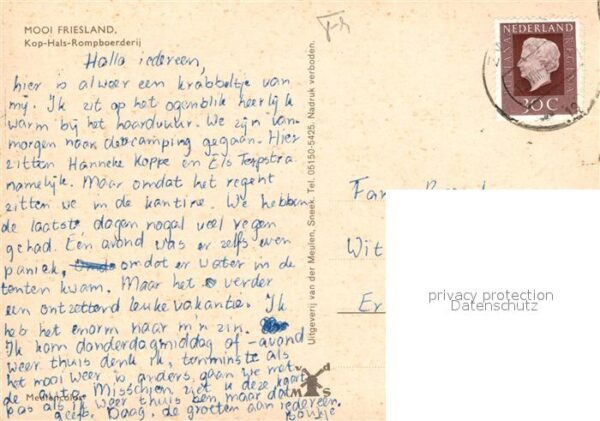 MOOI FRIESLAND,
Kop-Hals-Rompboerderij
Hallo iedereen,
hier is alweer een krabbeltje van
mij. Ik zit op het ogenblik heerlijk
warm bij het haardvuur. We zijn van-
morgen naar de camping gegaan. Hier
zitten Hanneke Koppe en Els Terpstra
namelijk. Maar omdat het regent
zitten we in de kantine. We hebben
de laatste dagen nogal veel regen
gehad. Eén avond was er zelfs even
paniek, omdat er water in de
tenten kwam. Maar het verder
een ontzettend leuke vakantie. Ik
heb het enorm naar m'n zin.
Ik kom donderdagmiddag of -avond
weer thuis denk ik, tenminste als
het mooi weer is anders gaan we met
de auto. Misschien ziet u deze kaart
pas als ik weer thuis ben, maar dat
geeft. Daag, de groeten aan iedereen.
Meulencolor
Uitgeverij van der Meulen, Sneek. Tel. 05150-5425. Nadruk verboden.
v d
M S
NEDERLAND
JULIANA REGINA
30 C
Fam.
Wit
Er
privacy protection
Datenschutz